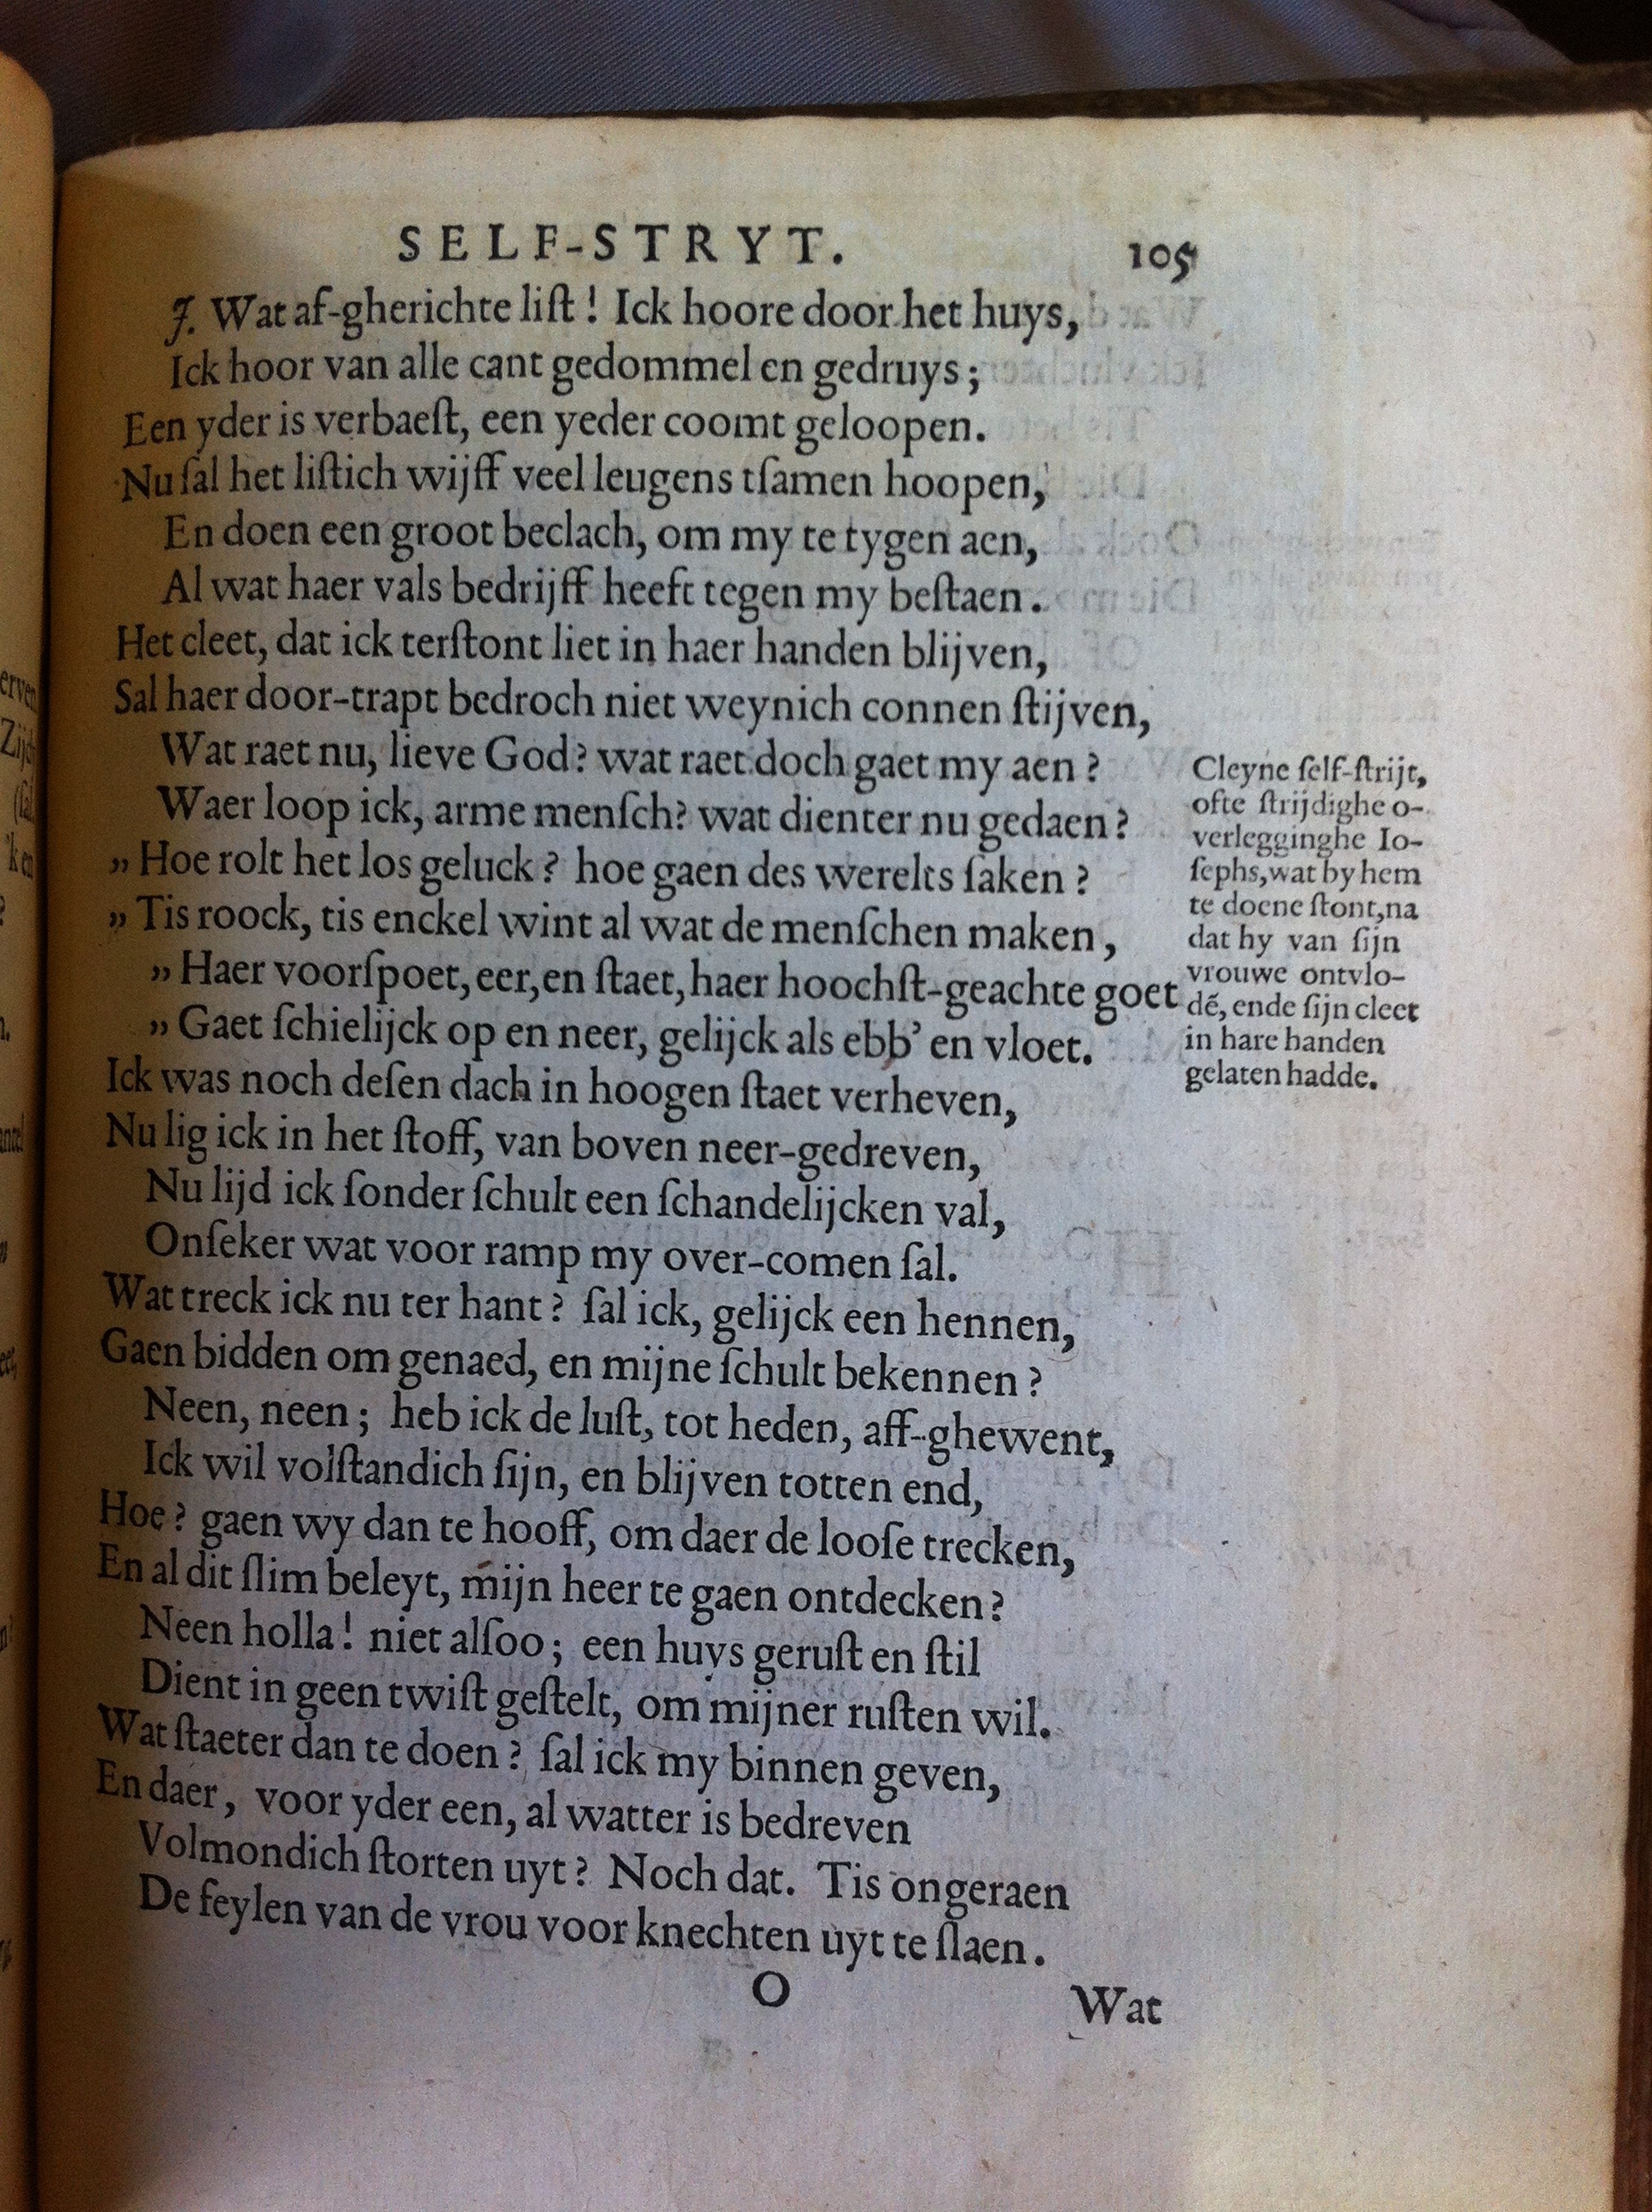 SELF-STRYT. 105
J. Wat af-gherichte liſt! Ick hoore door het huys,
Ick hoor van alle cant gedommel en gedruys;
Een yder is verbaeſt, een yeder coomt geloopen.
Nu ſal het liſtich wijff veel leugens tſamen hoopen,
En doen een groot beclach, om my te tygen aen,
Al wat haer vals bedrijff heeft tegen my beſtaen.
Het cleet, dat ick terſtont liet in haer handen blijven,
Sal haer door-trapt bedroch niet weynich connen ſtijven,
Wat raet nu, lieve God? wat raet doch gaet my aen?
Waer loop ick, arme menſch? wat dienter nu gedaen?
„ Hoe rolt het los geluck? hoe gaen des werelts ſaken?
„ Tis roock, tis enckel wint al wat de menſchen maken,
„ Haer voorſpoet, eer, en ſtaet, haer hoochſt-geachte goet
„ Gaet ſchielijck op en neer, gelijck als ebb' en vloet.
Ick was noch deſen dach in hoogen ſtaet verheven,
Nu lig ick in het ſtoff, van boven neer-gedreven,
Nu lijd ick ſonder ſchult een ſchandelijcken val,
Onſeker wat voor ramp my over-comen ſal.
Wat treck ick nu ter hant? ſal ick, gelijck een hennen,
Gaen bidden om genaed, en mijne ſchult bekennen?
Neen, neen; heb ick de luſt, tot heden, aff-ghewent,
Ick wil volſtandich ſijn, en blijven totten end,
Hoe? gaen wy dan te hooff, om daer de looſe trecken,
En al dit ſlim beleyt, mijn heer te gaen ontdecken?
Neen holla! niet alſoo; een huys geruſt en ſtil
Dient in geen twiſt geſtelt, om mijner ruſten wil.
Wat ſtaeter dan te doen? ſal ick my binnen geven,
En daer, voor yder een, al watter is bedreven
Volmondich ſtorten uyt? Noch dat. Tis ongeraen
De feylen van de vrou voor knechten uyt te ſlaen.
O Wat
Cleyne ſelf-ſtrijt,
ofte ſtrijdighe o-
verlegginghe Io-
ſephs, wat by hem
te doene ſtont, na
dat hy van ſijn
vrouwe ontvlo-
dē, ende ſijn cleet
in hare handen
gelaten hadde.